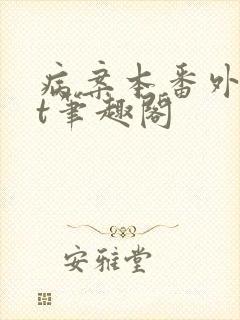 病案本番外
t笔趣阁
安雅堂